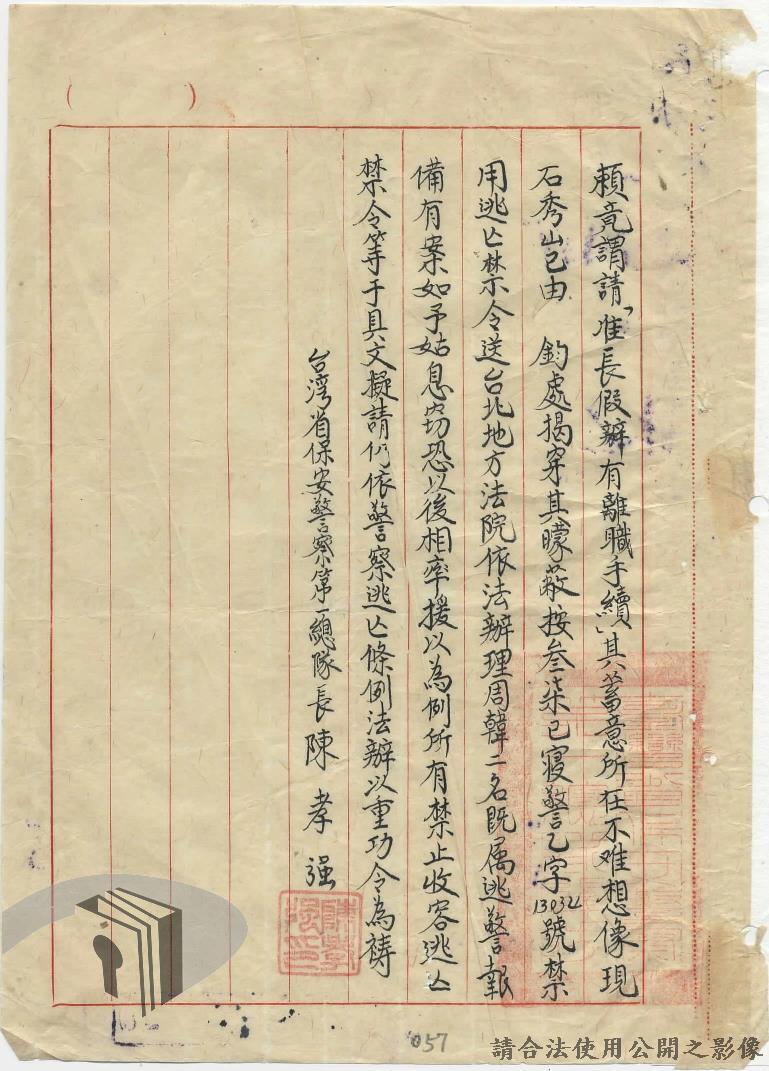 賴竟謂請「准長假辦有離職手續」其蓄意所在不难想像現
石秀山已由　鈞處揭穿其矇蔽按叁柒巳寢警乙字13032號禁
用逃亡禁令送台北地方法院依法辦理周韓二名既属逃警報
備有案如予姑息窃恐以後相率援以為例所有禁止收容逃亡
禁令等于具文擬請仍依警察逃亡條例法辦以重功令為禱
台湾省保安警察第一總隊長陳孝强
057
請合法使用公開之影像